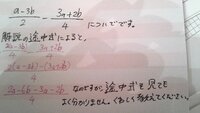 a-3b/2 - 3a+2b/4 についてです。
解説の途中式によると、
2a-3b/4 - 3a+2b/4
2(a-3b)-(3a+2b)/4
2a-6b-3a-2b/4 なのですが、途中式を見ても
よく分かりません。くわしく教えてください。